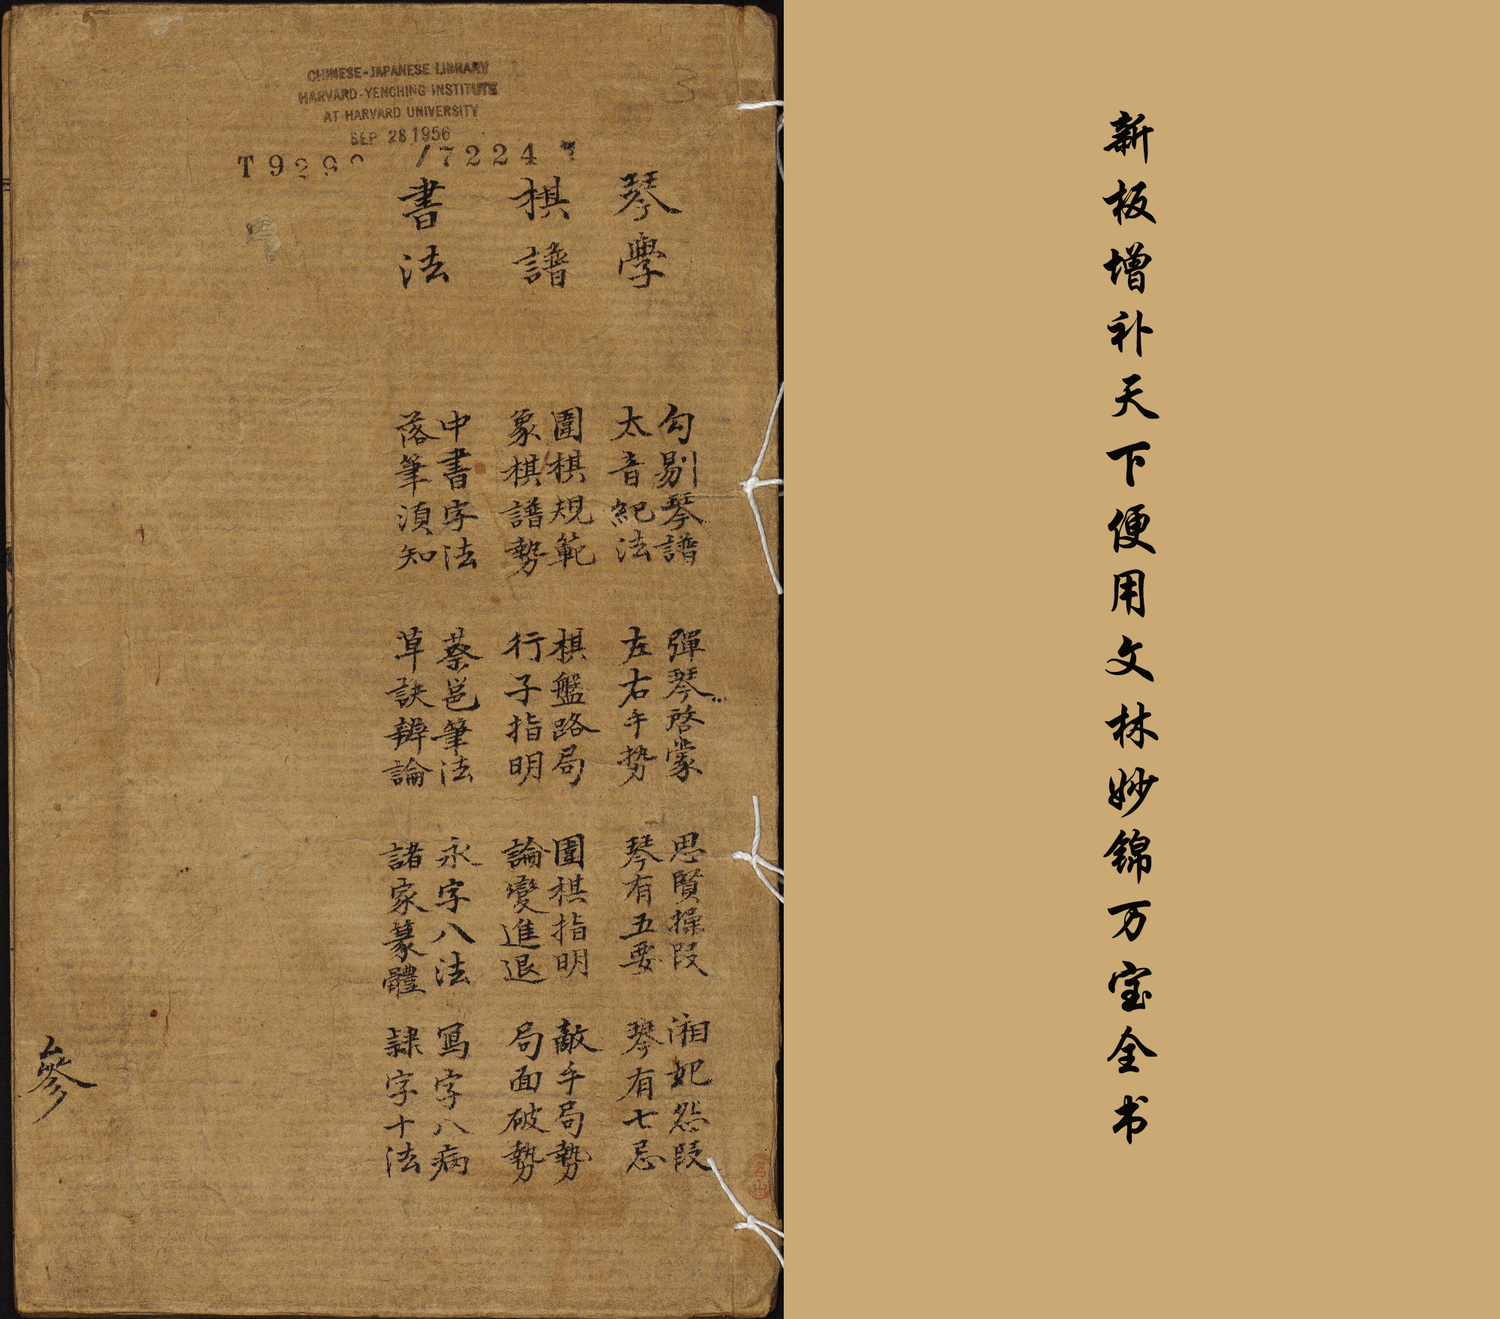 CHINESE-JAPANESE LIBRARY
HARVARD-YENCHING INSTITUTE
AT HARVARD UNIVERSITY
SEP 28 1956
T 9299 /7224
3
琴學
勾剔琴譜 彈琴啓蒙 思賢操段 湘妃怨段
太音紀法 左右手勢 琴有五要 琴有七忌
棋譜
圍棋規範 棋盤路局 圍棋指明 敵手局勢
象棋譜勢 行子指明 論變進退 局面破勢
書法
中書字法 蔡邕筆法 永字八法 寫字八病
落筆須知 草訣辨論 諸家篆體 隸字十法
參
新板增补天下便用文林妙锦万宝全书